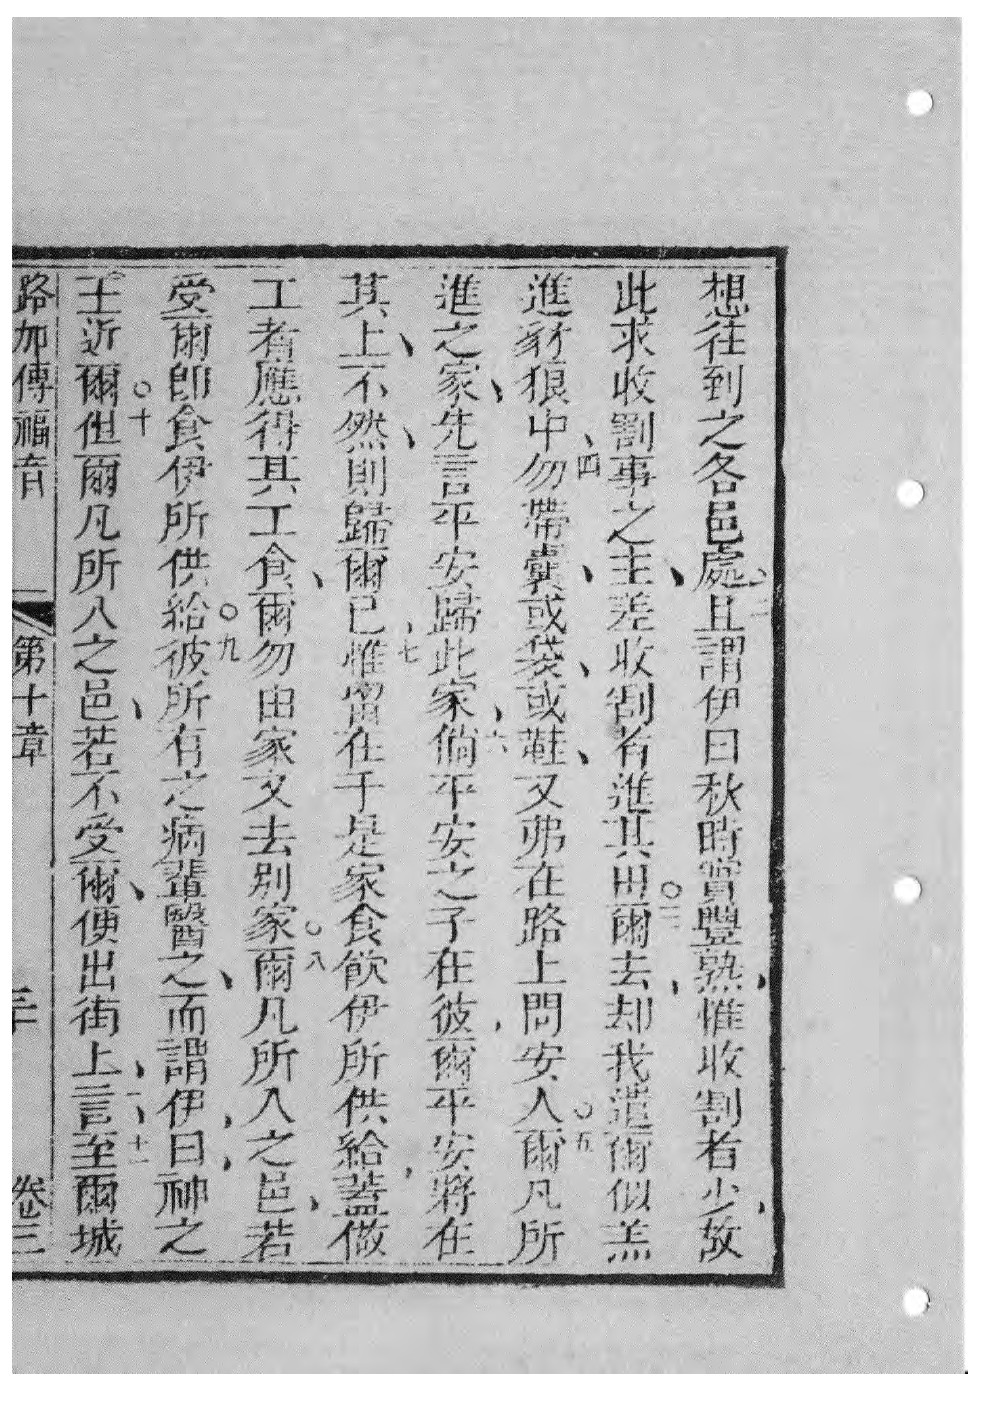 想往到之各邑處、○二且謂伊曰秋時實豐熟、惟收割者少、故
此求收割事之主、差收割者進其田○三爾去、却我遣爾似羔
進豺狼中、四勿帶囊、或袋、或鞋、又弗在路上問安人○五爾凡所
進之家、先言平安歸此家、六倘平安之子在彼、爾平安將在
其上、不然、則歸爾已、七惟留在于是家食飲伊所供給、蓋做
工者應得其工食、爾勿由家又去別家○八爾凡所入之邑、若
受爾即食伊所供給○九彼所有之病輩醫之、而謂伊、曰、神之
王近爾○十但爾凡所入之邑、若不受爾、便出街上、言、十一至爾城
路加傳福音 第十章 三十 卷三